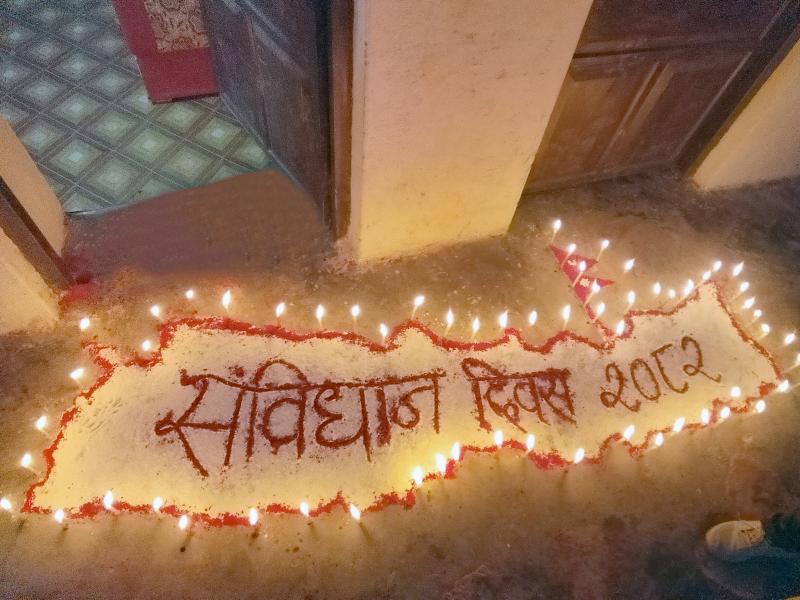 संविधान दिवस २०८२